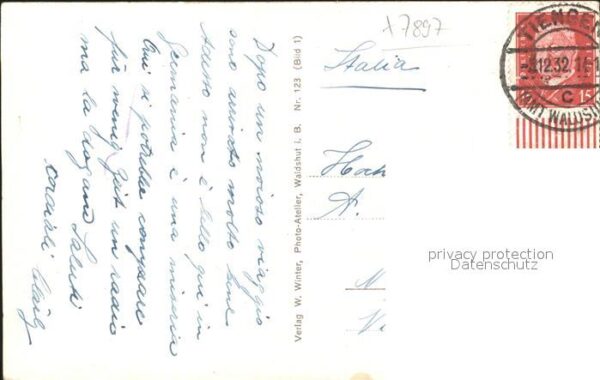 Dopo un noioso viaggio
sono arrivato molto bene
Adesso non è bello qui in
Germania è una miseria
Qui si potrebbe comprare
für wenig Geld un radio
ma la dogana Saluti
cordiali
Verlag W. Winter, Photo-Atelier, Waldshut i. B. Nr. 123 (Bild 1)
7897
Italia
TIENGEN
12.32.
C
(AMT WALDSHUT)
15
A.
privacy protection
Datenschutz